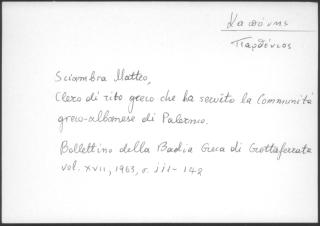 Καπούνης
Παρθένιος
Sciambra Matteo,
Clero di rito greco che ha servito la Communità
greco-albanese di Palermo.
Bollettino della Badia Greca di Grottaferrata
vol. XVII, 1963, σ. 111-142